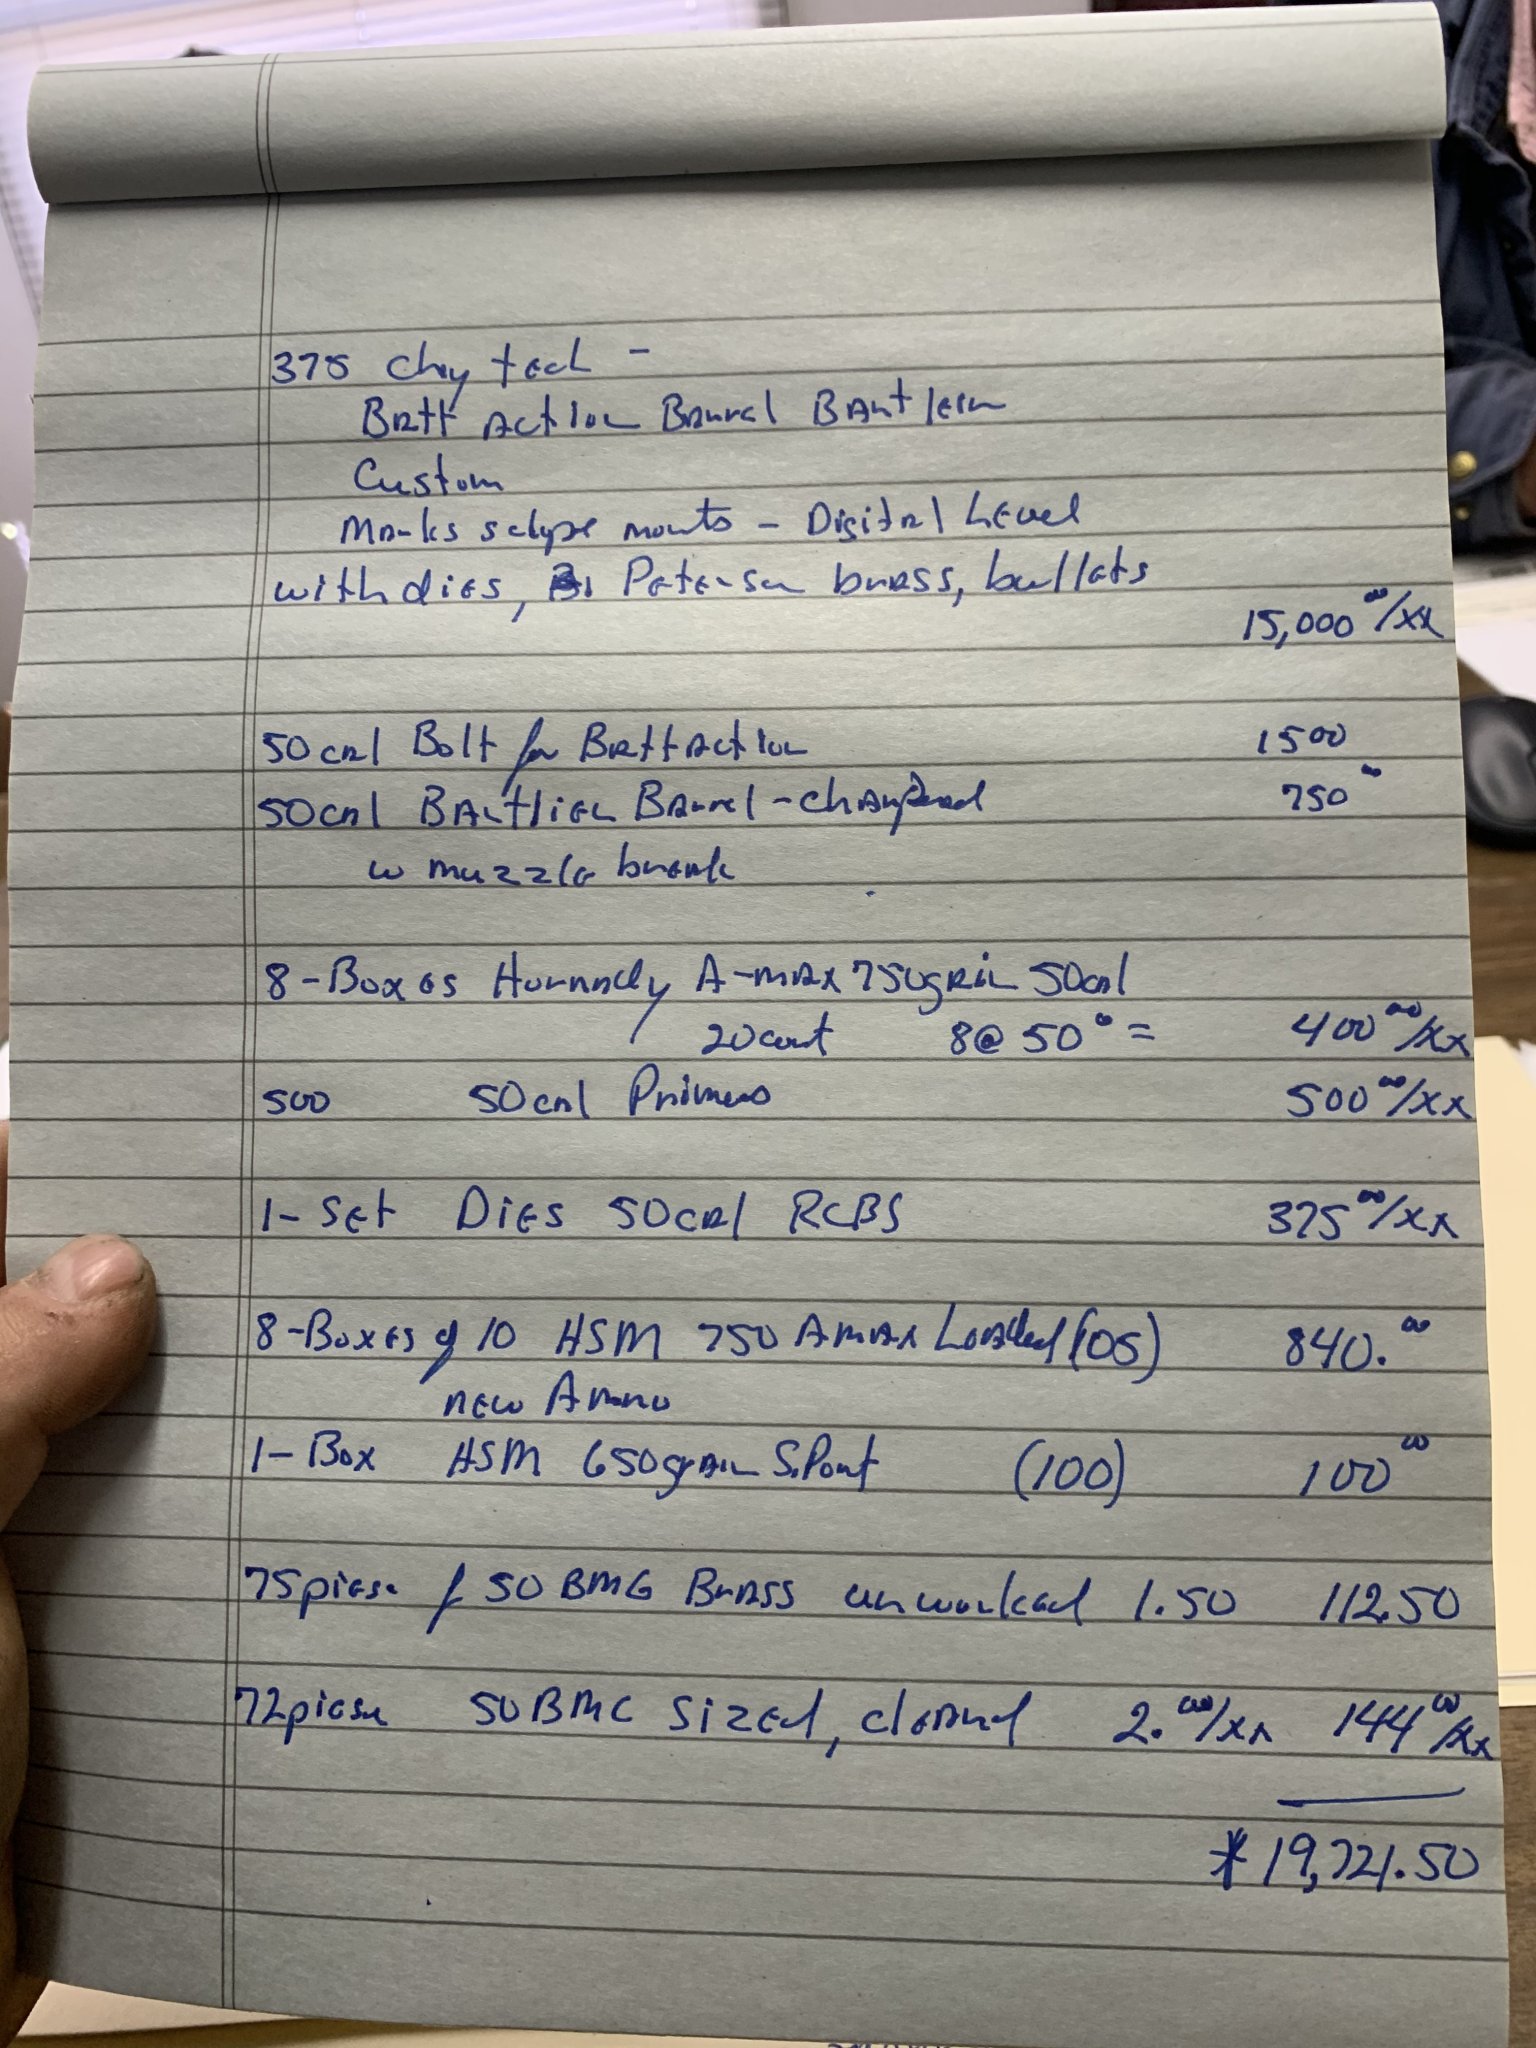 375 Chey tech -
Batt Action Barrel Bartlein
Custom
Marks sclype mounts - Digital Level
with dies, Peterson brass, bullets
15,000 00/xx
50cal Bolt for Batt Action 1500
50cal Bartlien Barrel - chambered 750 00
w muzzle break
8-Boxes Hornady A-max 750grain 50cal
20 count 8@ 50 0 = 400 00/xx
500 50cal Primers 500 00/xx
1- Set Dies 50cal RCBS 375 00/xx
8-Boxes of 10 HSM 750 Amax Loaded (105) 840. 00
new Ammo
1- Box HSM 650grain S.Point (100) 100 00
75 piese of 50 BMG Brass unworked 1.50 112.50
72 piese 50 BMG Sized, cleaned 2. 00/xx 144 00/xx
* 19,721.50